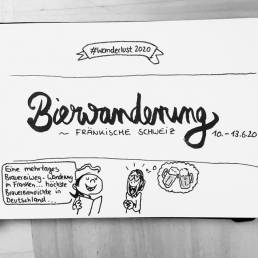 #wonderlust 2020
Bierwanderung
~ FRÄNKISCHE SCHWEIZ 10.-13.6.20
Eine mehrtages
Brauereiweg-Wanderung
in Franken... höchste
Brauereiendichte in
Deutschland...